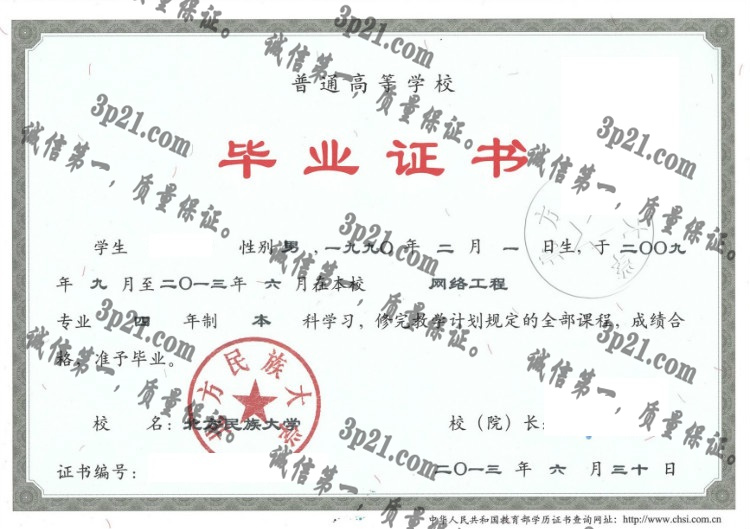 普通高等学校
毕业证书
学生 性别 男 ,一九九〇年 二 月 一 日生，于 二〇〇九
年 九 月至二〇一三年 六 月在本校 网络工程
专业 四 年制 本 科学习，修完教学计划规定的全部课程，成绩合
格，准予毕业。
北方民族大学
校 名：北方民族大学 校（院）长：
证书编号： 二〇一三 年 六 月三十日
中华人民共和国教育部学历证书查询网址：http://www.chsi.com.cn
3p21.com
诚信第一，质量保证。
3p21.com
诚信第一，质量保证。
3p21.com
诚信第一，质量保证。
3p21.com
诚信第一，质量保证。
3p21.com
诚信第一，质量保证。
3p21.com
诚信第一，质量保证。
3p21.com
诚信第一，质量保证。
3p21.com
诚信第一，质量保证。